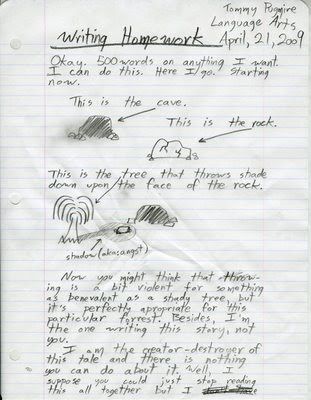 Tommy Pugmire
Language Arts
Writing Homework April, 21, 2009
Okay. 500 words on anything I want.
I can do this. Here I go. Starting
now.
This is the cave.
This is the rock.
This is the tree that throws shade
down upon the face of the rock.
shadow (aka: angst)
Now you might think that throw-
ing is a bit violent for something
as benevalent as a shady tree, but
it's perfectly apropriate for this
particular forrest. Besides, I'm
the one writing this story, not
you.
I am the creator-destroyer of
this tale and there is nothing
you can do about it. Well, I
suppose you could just stop reading
this all together but I